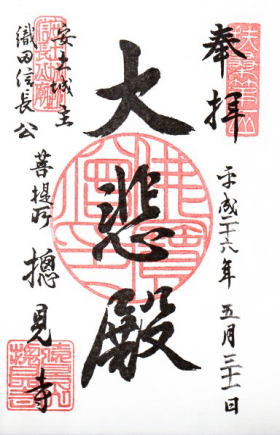 奉拝
平成二十六年 五月三十一日
大悲殿
安土城主
織田信長公
菩提所 摠見寺